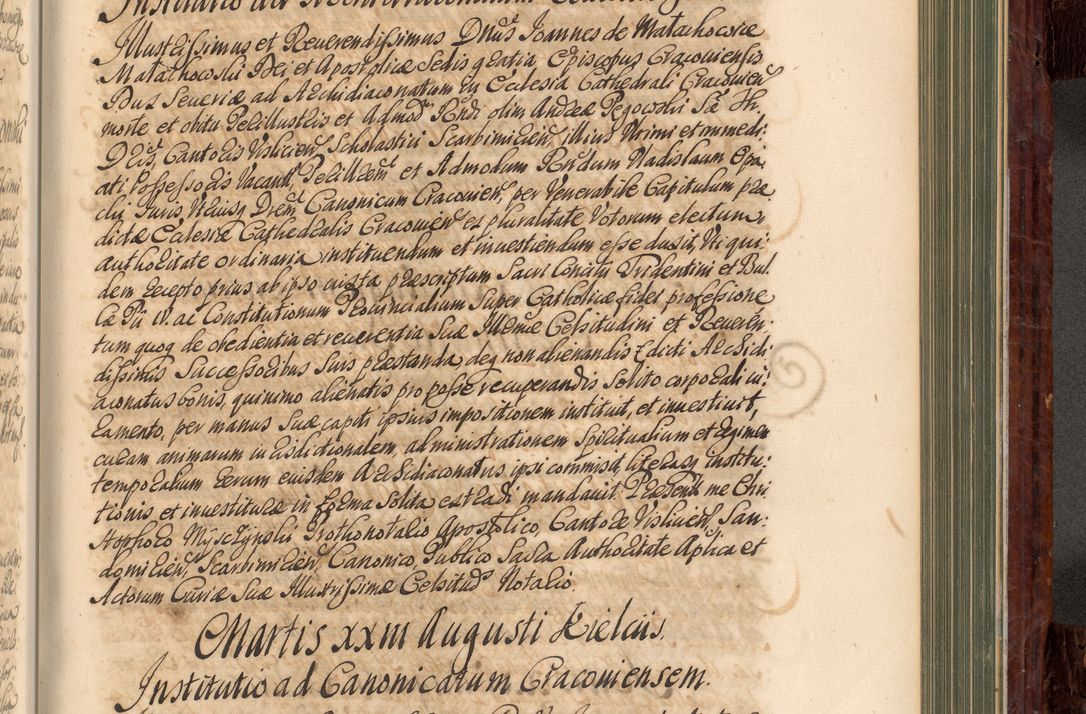 Institutio ad Archidiaconatum
Illustrissimus et Reuerendissimus Dnus Joannes de Małachocvie
Małachocvski Dei, et Apostolicæ Sedis gratia, Episcopus Cracouiensis
Dux Seueriæ ad Archidiaconatum in Ecclesia Cathedrali Cracouien
morte et obitu Perillustris et Admodm Rndi olim Andreæ Pegocvski Sæ Th.
Dris, Cantoris Vislicien, Scholastici Scarbimirien, illius Vltimi et immedi:
ati Possessoris Vacant, Perillrem et Admodum Rndum Vladislaum Opa
cki Juris Vtriusq Drem Canonicum Cracouien, per Venerabile Capitulum præ
dictæ Ecclesiæ Cathedralis Cracouien ex pluralitate Votorum electum,
authoritate ordinaria instituendum et inuestiendum esse duxit, Vti qui:
dem recepto prius ab ipso iuxta præscriptum Sacri Concilii Tridentini et Bul
læ Pii IV. ac Constitutionum Prouincialium Super Catholicæ fidei professione
tum quoq de obedientia et reuerentia Suæ Illmæ Celsitudini et Reueren:
dissimis Successoribus Suis præstanda, deq non alienandis dicti Archidi
aconatus bonis, quinimo alienatis pro posse recuperandis Solito corporali iu:
ramento, per manus Suæ capiti ipsius impositionem instituit, et inuestiuit,
curam animarum iurisdictionalem administrationem Spiritualium et regimen
temporalium rerum eiusdem Archidiaconatus ipsi commisit, literasq institu:
tionis et inuestituræ in forma Solita extradi mandauit. Præsente me Chri
stophoro Myszczynski Prothonotario Apostolico, Cantore Vislicien, San:
domirien, Scarbimirien, Canonico, Publico Sacra Authoritate Aplica et
Actorum Curiæ Suæ Illustrissimæ Celsitud Notario.
Martis XXIII Augusti Kielciis.
Institutio ad Canonicatum Cracouiensem.